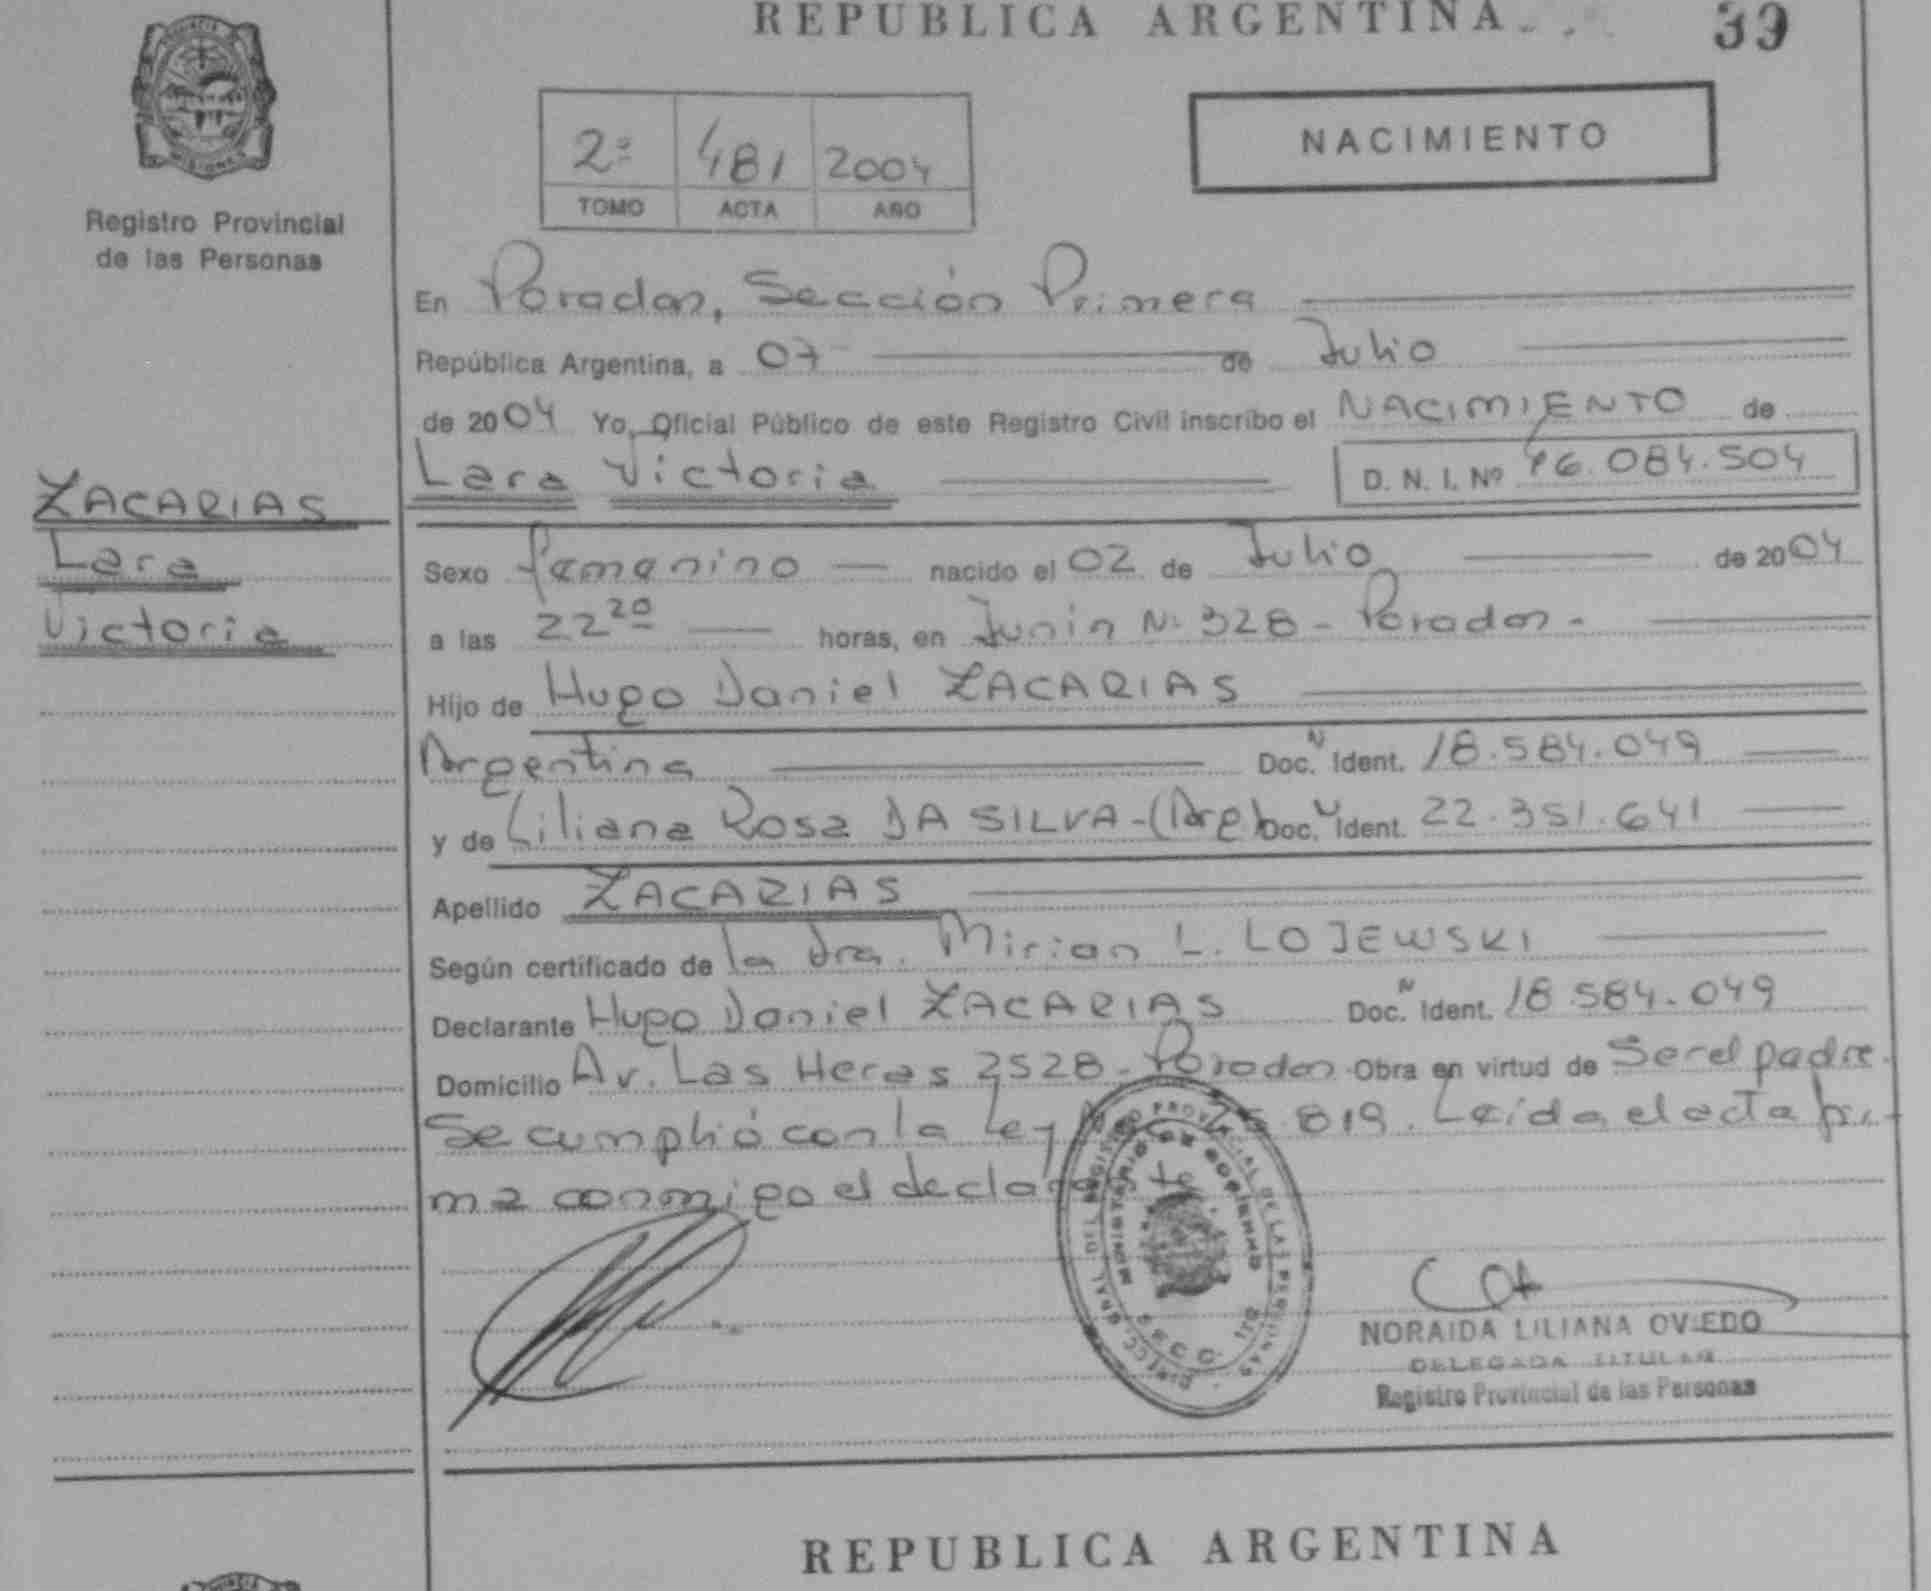 REPUBLICA ARGENTINA
39
PROVINCIA DE
MISIONES
Registro Provincial
de las Personas
2º 481 2004
TOMO ACTA AÑO
NACIMIENTO
En Posadas, Sección Primera
República Argentina, a 07 de Julio
de 2004 Yo, Oficial Público de este Registro Civil inscribo el NACIMIENTO de
Lara Victoria D. N. I. Nº 46.084.504
ZACARIAS
Lara
Victoria
Sexo femenino nacido el 02 de Julio de 2004
a las 22 20 horas, en Junín Nº 328 - Posadas -
Hijo de Hugo Daniel ZACARIAS
Argentina Doc. N Ident. 18.584.049
y de Liliana Rosa DA SILVA - (Arg) Doc. N Ident. 22.351.641
Apellido ZACARIAS
Según certificado de la Dra. Mirian L. LOJEWSKI
Declarante Hugo Daniel ZACARIAS Doc. N Ident. 18.584.049
Domicilio Av. Las Heras 2528 - Posadas Obra en virtud de Ser el padre.
Se cumplió con la Ley 819. Leída el acta fir-
ma conmigo el
MINISTERIO DE GOBIERNO
REGISTRO PROVINCIAL DE LAS PERSONAS
NORAIDA LILIANA OVIEDO
DELEGADA TITULAR
Registro Provincial de las Personas
REPUBLICA ARGENTINA